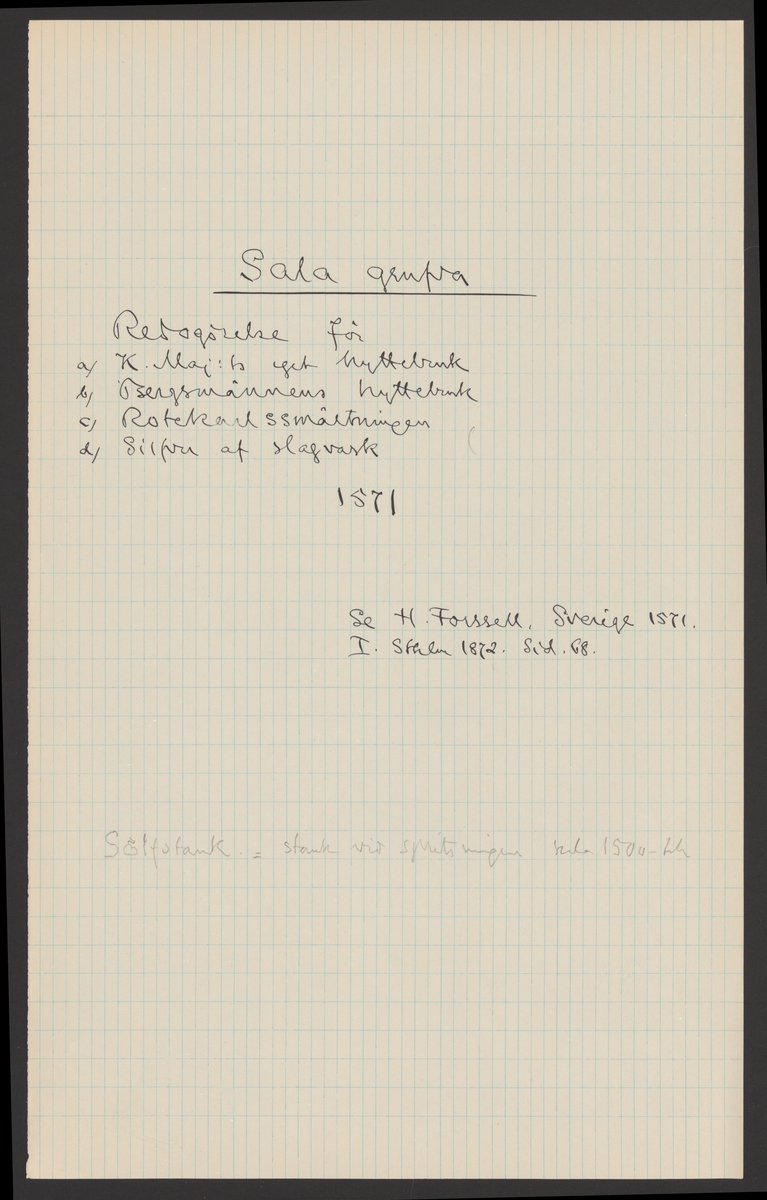 Sala grufva
Redogörelse för
a/ K. Maj:ts eget hyttebruk
b/ Bergsmännens hyttebruk
c/ Rotekarlssmältningen
d/ Silfver af slagvask
1571
Se H. Forssell, Sverige 1571.
I. Sthlm 1872. Sid. 68.
= stank vid 1500-